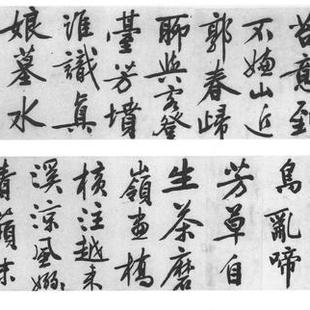 苔意到
不嫌山近
郭春歸
聊與客登
臺芳墳
誰識真
娘墓水
鳥亂啼
芳草自
生茶磨
嶺畫橋
橫注越来
溪涼風嫋
青蘋末